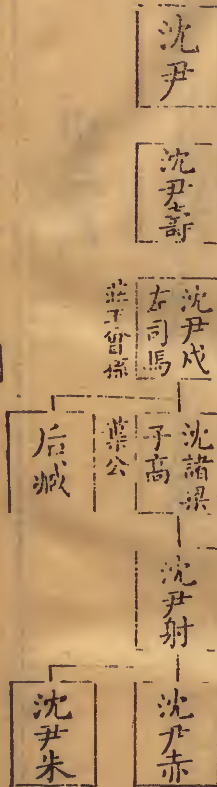 沈尹
沈尹壽
沈尹戍
左司馬
莊王曾孫
沈諸梁
子高
葉公
后臧
沈尹射
沈尹赤
沈尹朱